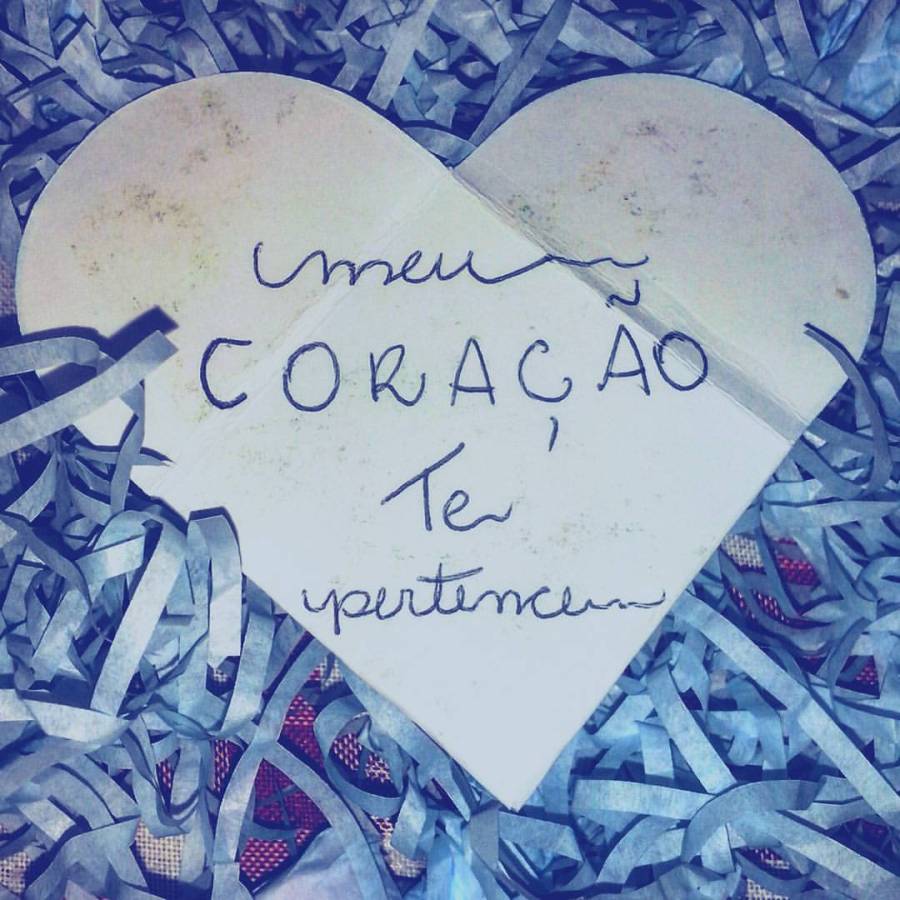 meu
CORAÇÃO
Te
pertence